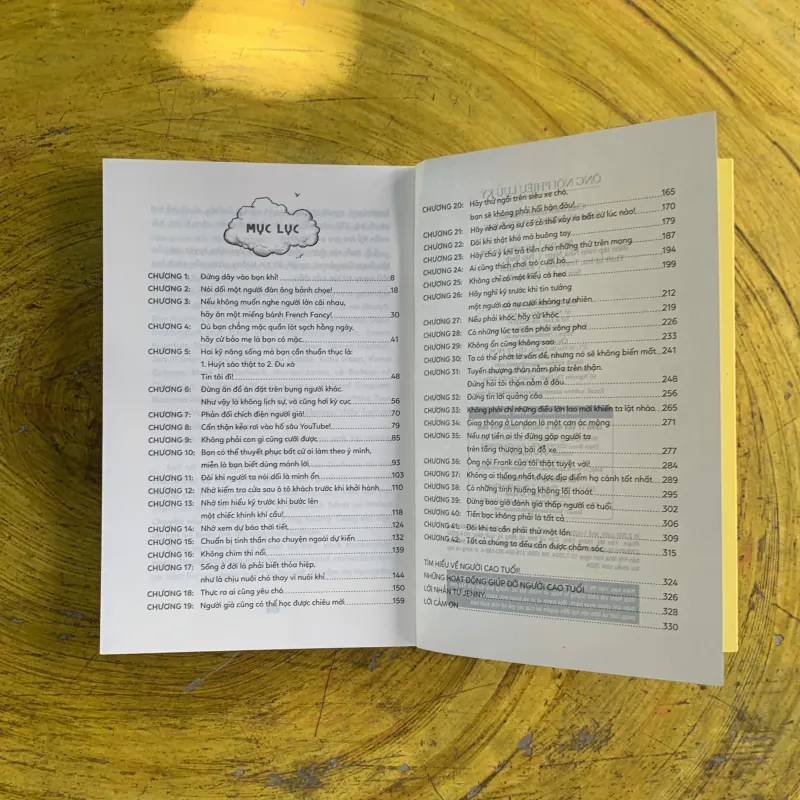 MỤC LỤC
CHƯƠNG 1: Đừng dây vào bọn khỉ! 8
CHƯƠNG 2: Nói dối một người đàn ông bảnh chọe! 18
CHƯƠNG 3: Nếu không muốn nghe người lớn cãi nhau,
hãy ăn một miếng bánh French Fancy! 30
CHƯƠNG 4: Dù bạn chẳng mặc quần lót sạch hằng ngày,
hãy cứ bảo mẹ là bạn có mặc. 41
CHƯƠNG 5: Hai kỹ năng sống mà bạn cần thuần thục là:
1. Huýt sáo thật to 2. Đu xà
Tin tôi đi! 48
CHƯƠNG 6: Đừng ăn đồ ăn đặt trên bụng người khác.
Như vậy là không lịch sự, và cũng hơi kỳ cục 56
CHƯƠNG 7: Phản đối chích điện người già! 70
CHƯƠNG 8: Cẩn thận kẻo rơi vào hố sâu YouTube! 79
CHƯƠNG 9: Không phải con gì cũng cưỡi được 85
CHƯƠNG 10: Bạn có thể thuyết phục bất cứ ai làm theo ý mình,
miễn là bạn biết dùng mánh lới. 93
CHƯƠNG 11: Đôi khi người ta nói dối là mình ổn 103
CHƯƠNG 12: Nhớ kiểm tra cửa sau ô tô khách trước khi khởi hành 110
CHƯƠNG 13: Nhớ tìm hiểu kỹ trước khi bước lên
một chiếc khinh khí cầu! 118
CHƯƠNG 14: Nhớ xem dự báo thời tiết. 124
CHƯƠNG 15: Chuẩn bị tinh thần cho chuyện ngoài dự kiến 132
CHƯƠNG 16: Không chìm thì nổi 139
CHƯƠNG 17: Sống ở đời là phải biết thỏa hiệp,
như là chịu nuôi chó thay vì nuôi khỉ 144
CHƯƠNG 18: Thực ra ai cũng yêu chó 150
CHƯƠNG 19: Người già cũng có thể học được chiêu mới 159
CHƯƠNG 20: Hãy thử ngồi trên siêu xe chó,
bạn sẽ không phải hối hận đâu! 165
CHƯƠNG 21: Hãy nhớ rằng sự cố có thể xảy ra bất cứ lúc nào! 170
CHƯƠNG 22: Đôi khi thật khó mà buông tay. 179
CHƯƠNG 23: Hãy chú ý khi trả tiền cho những thứ trên mạng 187
CHƯƠNG 24: Ai cũng thích chơi trò cưỡi bò. 194
CHƯƠNG 25: Không chỉ có một kiểu cá heo 199
CHƯƠNG 26: Hãy nghĩ kỹ trước khi tin tưởng
một người có nụ cười không tự nhiên. 212
CHƯƠNG 27: Nếu phải khóc, hãy cứ khóc 219
CHƯƠNG 28: Có những lúc ta cần phải xông pha 226
CHƯƠNG 29: Không ổn cũng không sao 233
CHƯƠNG 30: Ta có thể phớt lờ vấn đề, nhưng nó sẽ không biến mất 241
CHƯƠNG 31: Tuyến thượng thận nằm phía trên thận.
Đừng hỏi tôi thận nằm ở đâu. 248
CHƯƠNG 32: Đừng tin lời quảng cáo 256
CHƯƠNG 33: Không phải chỉ những điều lớn lao mới khiến ta lật nhào. 265
CHƯƠNG 34: Giao thông ở London là một cơn ác mộng 271
CHƯƠNG 35: Nếu nợ tiền ai thì đừng gặp người ta
trên tầng thượng bãi đỗ xe. 277
CHƯƠNG 36: Ông nội Frank của tôi thật tuyệt vời! 284
CHƯƠNG 37: Không ai thống nhất được địa điểm họ cảnh tốt nhất 289
CHƯƠNG 38: Có những tình huống không lối thoát 295
CHƯƠNG 39: Đừng bao giờ đánh giá thấp người có tuổi. 302
CHƯƠNG 40: Tiền bạc không phải là tất cả 306
CHƯƠNG 41: Đôi khi ta cần phải thử một lần. 309
CHƯƠNG 42: Tất cả chúng ta đều cần được chăm sóc 315
TÌM HIỂU VỀ NGƯỜI CAO TUỔI! 324
NHỮNG HOẠT ĐỘNG GIÚP ĐỠ NGƯỜI CAO TUỔI 326
LỜI NHẮN TỪ JENNY 328
LỜI CẢM ƠN 330